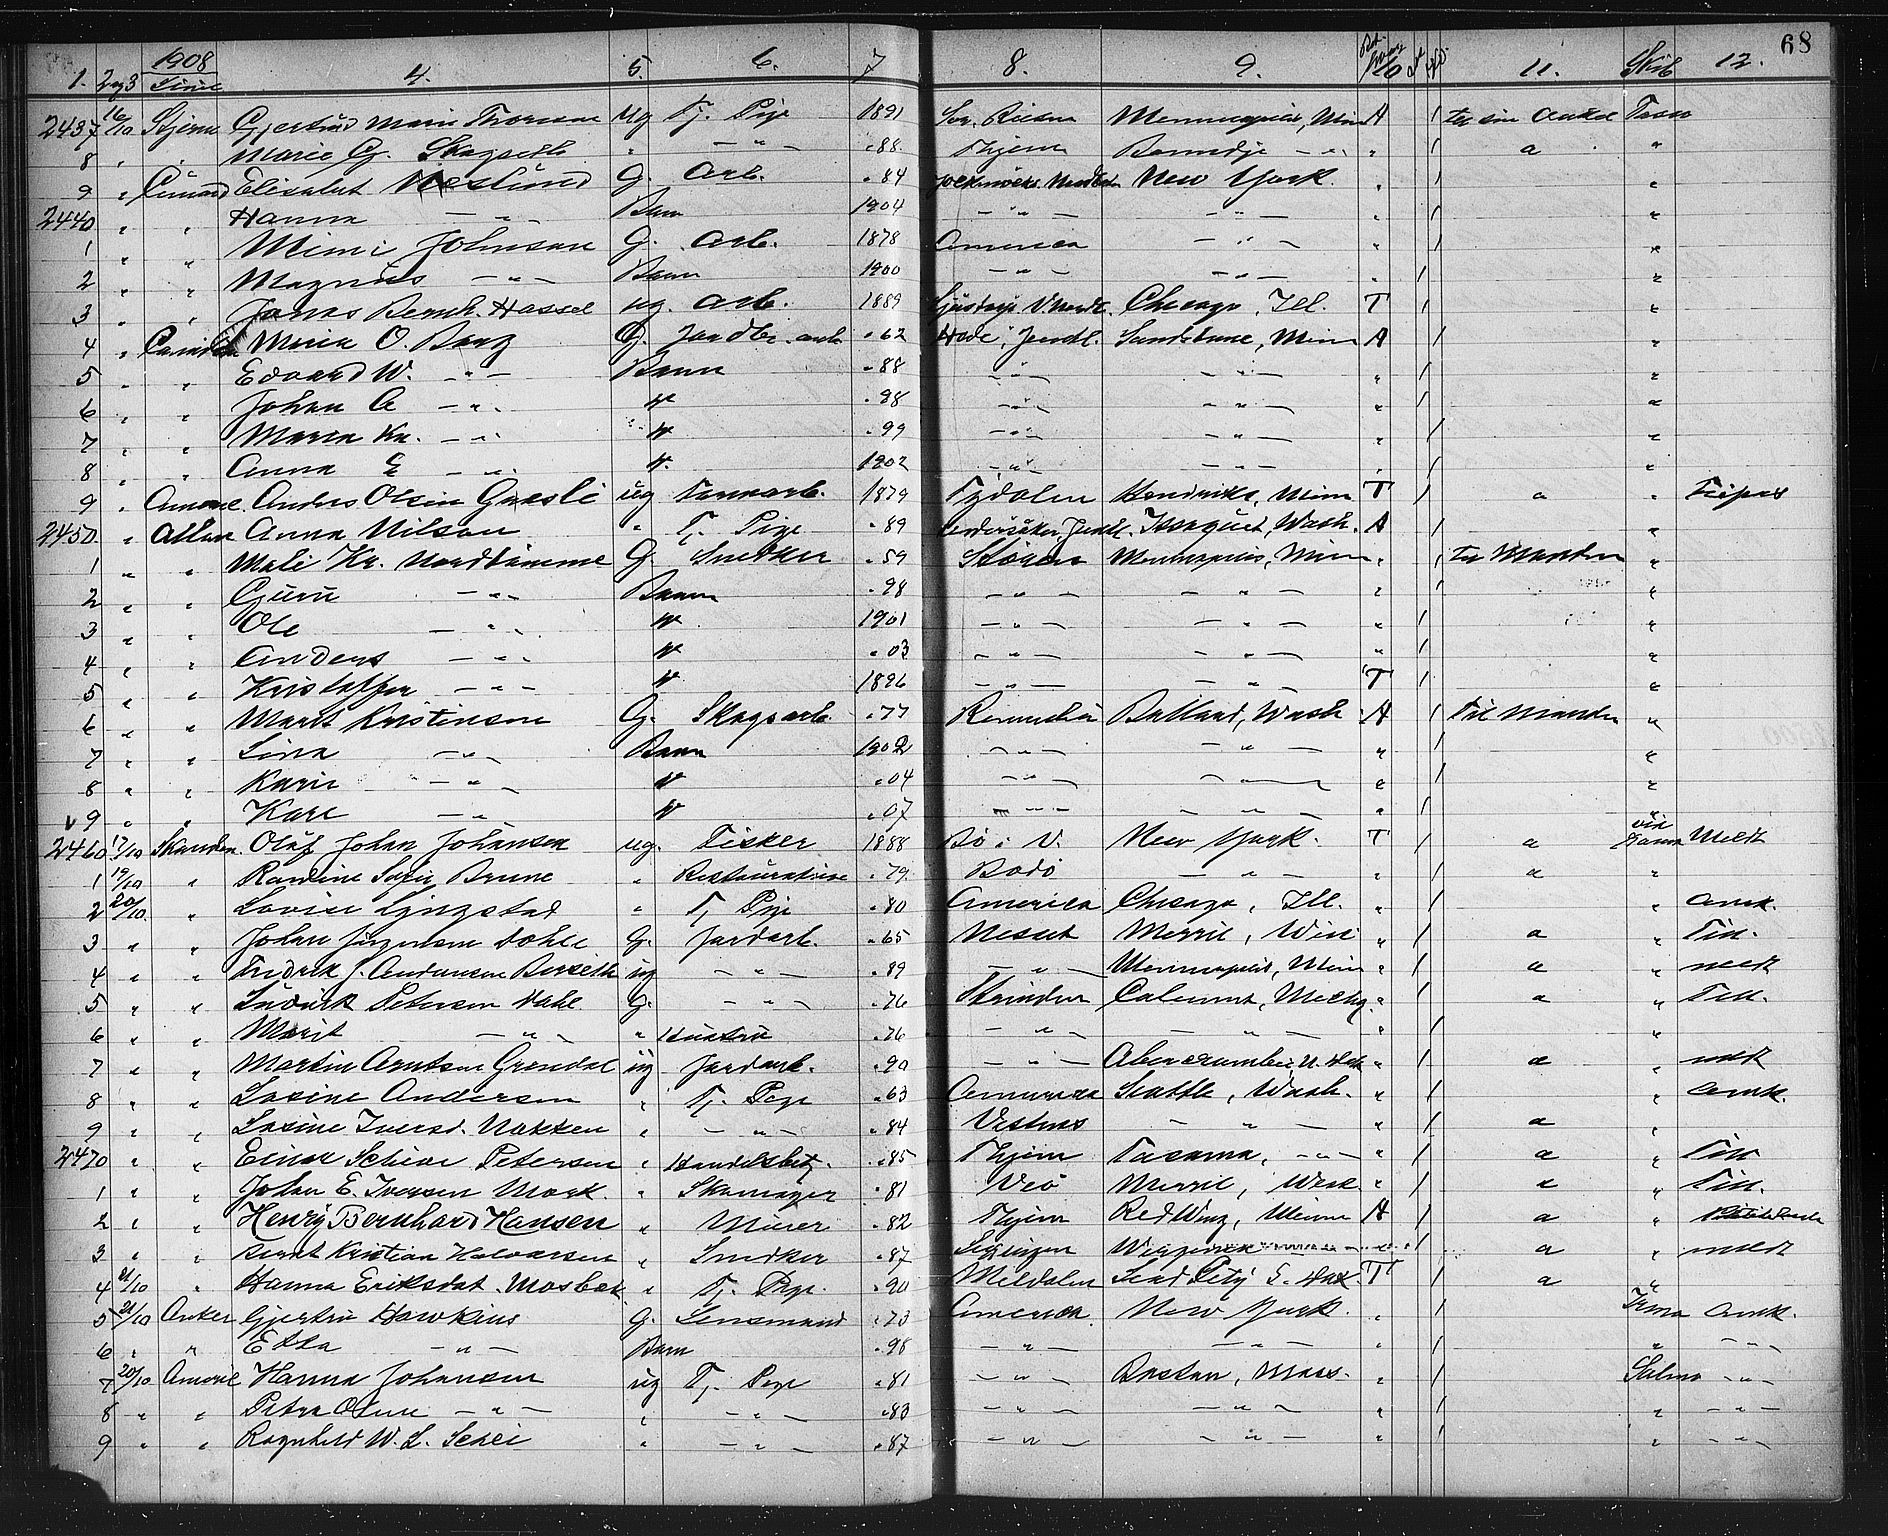 68
1908
1. 2 og 3 Linie 4. 5. 6. 7 8. 9. 10 11. Skib 12.
2437 16/10 Stjerne Gjertrud Marie Thoresen ug Tj. Pige 1891 Minneapolis, Min A / til sin Onkel Tasso
8 " " Marie G. Skagseth " — " — " 88 Thjem — " — " / a "
9 " Cunard Elisabet Westlund G. Arb. " 84 New York. " / "
2440 " " Hanna — " — Barn 1904 — " — — " — " / "
1 " " Mimi Johnson G. Arb. 1878 America — " — " / "
2 " " Magnus — " — Barn 1900 — " — — " — " / "
3 " " Jonas Bernh. Hassel ug. Arb. 1889 Chicago, Ill. T / "
4 " Maria O. Berg G. Jordbr. arb. " 62 Sandstone, Min A / "
5 " " Edvard W. — " — Barn " 88 — " — — " — " / "
6 " " Johan A — " — " " 98 — " — — " — " / "
7 " " Maria Kr. — " — " " 99 — " — — " — " / "
8 " " Anna E — " — " 1902 — " — — " — " / "
9 " Anders Olsen Græsli ug Farmarb. 1879 Tydalen Hendriks, Minn T / a "
2450 " Allan Anna Nilson " Tj. Pige " 89 Issaquet, Wash. A / "
1 " " Mali Kr. Nordtømme G. Snedker " 59 Støren Minneapolis, Minn " / til Manden "
2 " " Guru — " — Barn " 98 — " — — " — " / "
3 " " Ole — " — " 1901 — " — — " — " / "
4 " " Anders — " — " " 03 — " — — " — " / "
5 " " Kristoffer — " — " 1896 — " — — " — T / "
6 " " Marit Kristensen G. Skogsarb. " 77 Ballard, Wash A / Til Manden "
7 " " Lina — " — Barn 1902 — " — — " — " / "
8 " " Karin — " — " " 04 — " — — " — " / "
9 " " Kare — " — " " 07 — " — — " — " / "
2460 17/10 Skandin. Oluf Johan Johansen ug. Fisker 1888 Bø i V. New York. T / a via
1 19/10 " Ramine Sofie Brune " " 79 Bodö — " — " / a "
2 20/10 " Lovise Ljugstad " Tj Pige " 80 America Chicago, Ill. " / " Amk.
3 " " Johan Jørgensen Dahle G. Jordarb. " 65 Nesset Merril, Wis " / a "
4 " " Fredrik J. Andersen ug — " — " 89 — " — Minneapolis, Min " / a " medt
5 " " Ludvik Petersen Dahl G. — " — " 76 Strinden Calumet, Michg. " / a "
6 " " Marit — " — " Hustru " 76 — " — — " — " / "
7 " " Martin Arntsen Grendal ug Jordarb. " 90 — " — Abercrombie, N. Dak " / a " medt
8 " " Lovine Andersen " Tj. Pige " 63 America Seattle, Wash. " / " Amk.
9 " " Iversd. Nakken " — " — " 84 Vestnes — " — " / a "
2470 " " Einar Schive Petersen " Handelsbetj. " 85 Thjem Tacoma, — " — " / a "
1 " " Johan E. Iversen Mork. " Skomager " 81 Merril, Wisk. " / a "
2 " " Henry Bernhard Hansen " Murer " 82 Thjem Red Wing, Minn A / a "
3 " " Bernt Kristian Halvorsen " Snedker " 87 " / a " medt
4 21/10 " Hanna Eriksdat. Mosbæk " Tj. Pige " 90 Meldalen Lead City S. Dak. T / a "
5 21/10 Anker Gjertru Hawkins G. Lensmand " 73 America New York. " / Amk.
6 " " Etta — " — Barn " 98 — " — — " — " / " — " —
7 20/10 Hanna Johansen ug Tj. Pige " 81 — " — Boston, Mass. " / Salmo — " —
8 " " Petra — " — " — " — " 83 — " — — " — " / " — " —
9 " " Ragnhild W. L. Schei " — " — " 87 — " — — " — " / " — " —